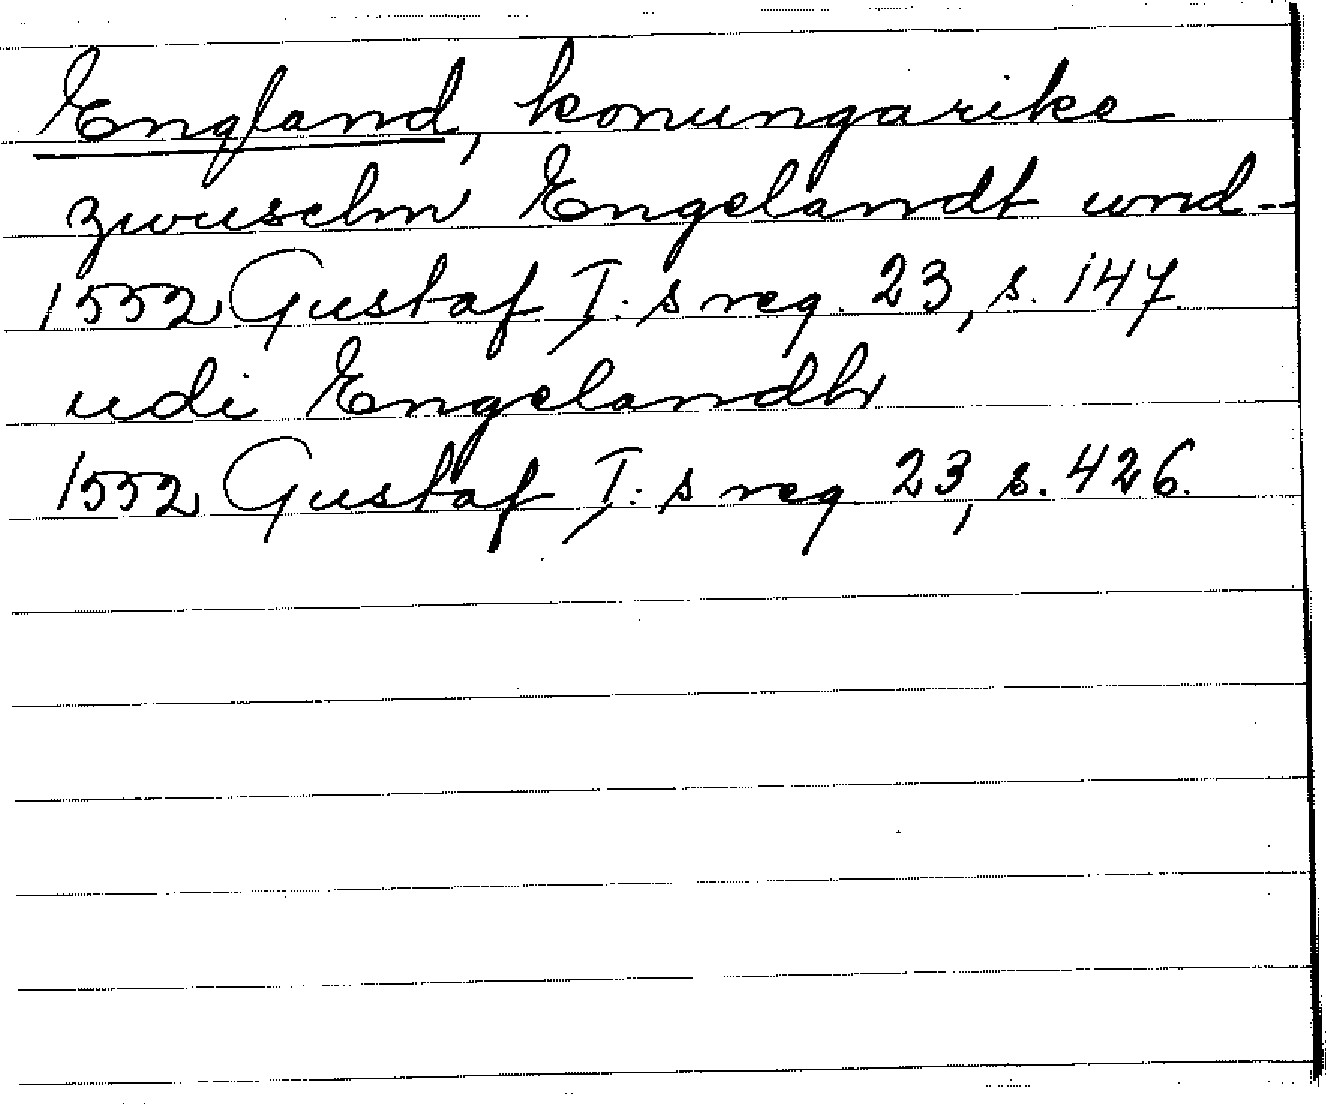 England, konungarike
zwuschn Engelandt und--
1552 Gustaf I:s reg. 23, s. 147
udi Engelandh
1552 Gustaf I:s reg 23, s. 426.